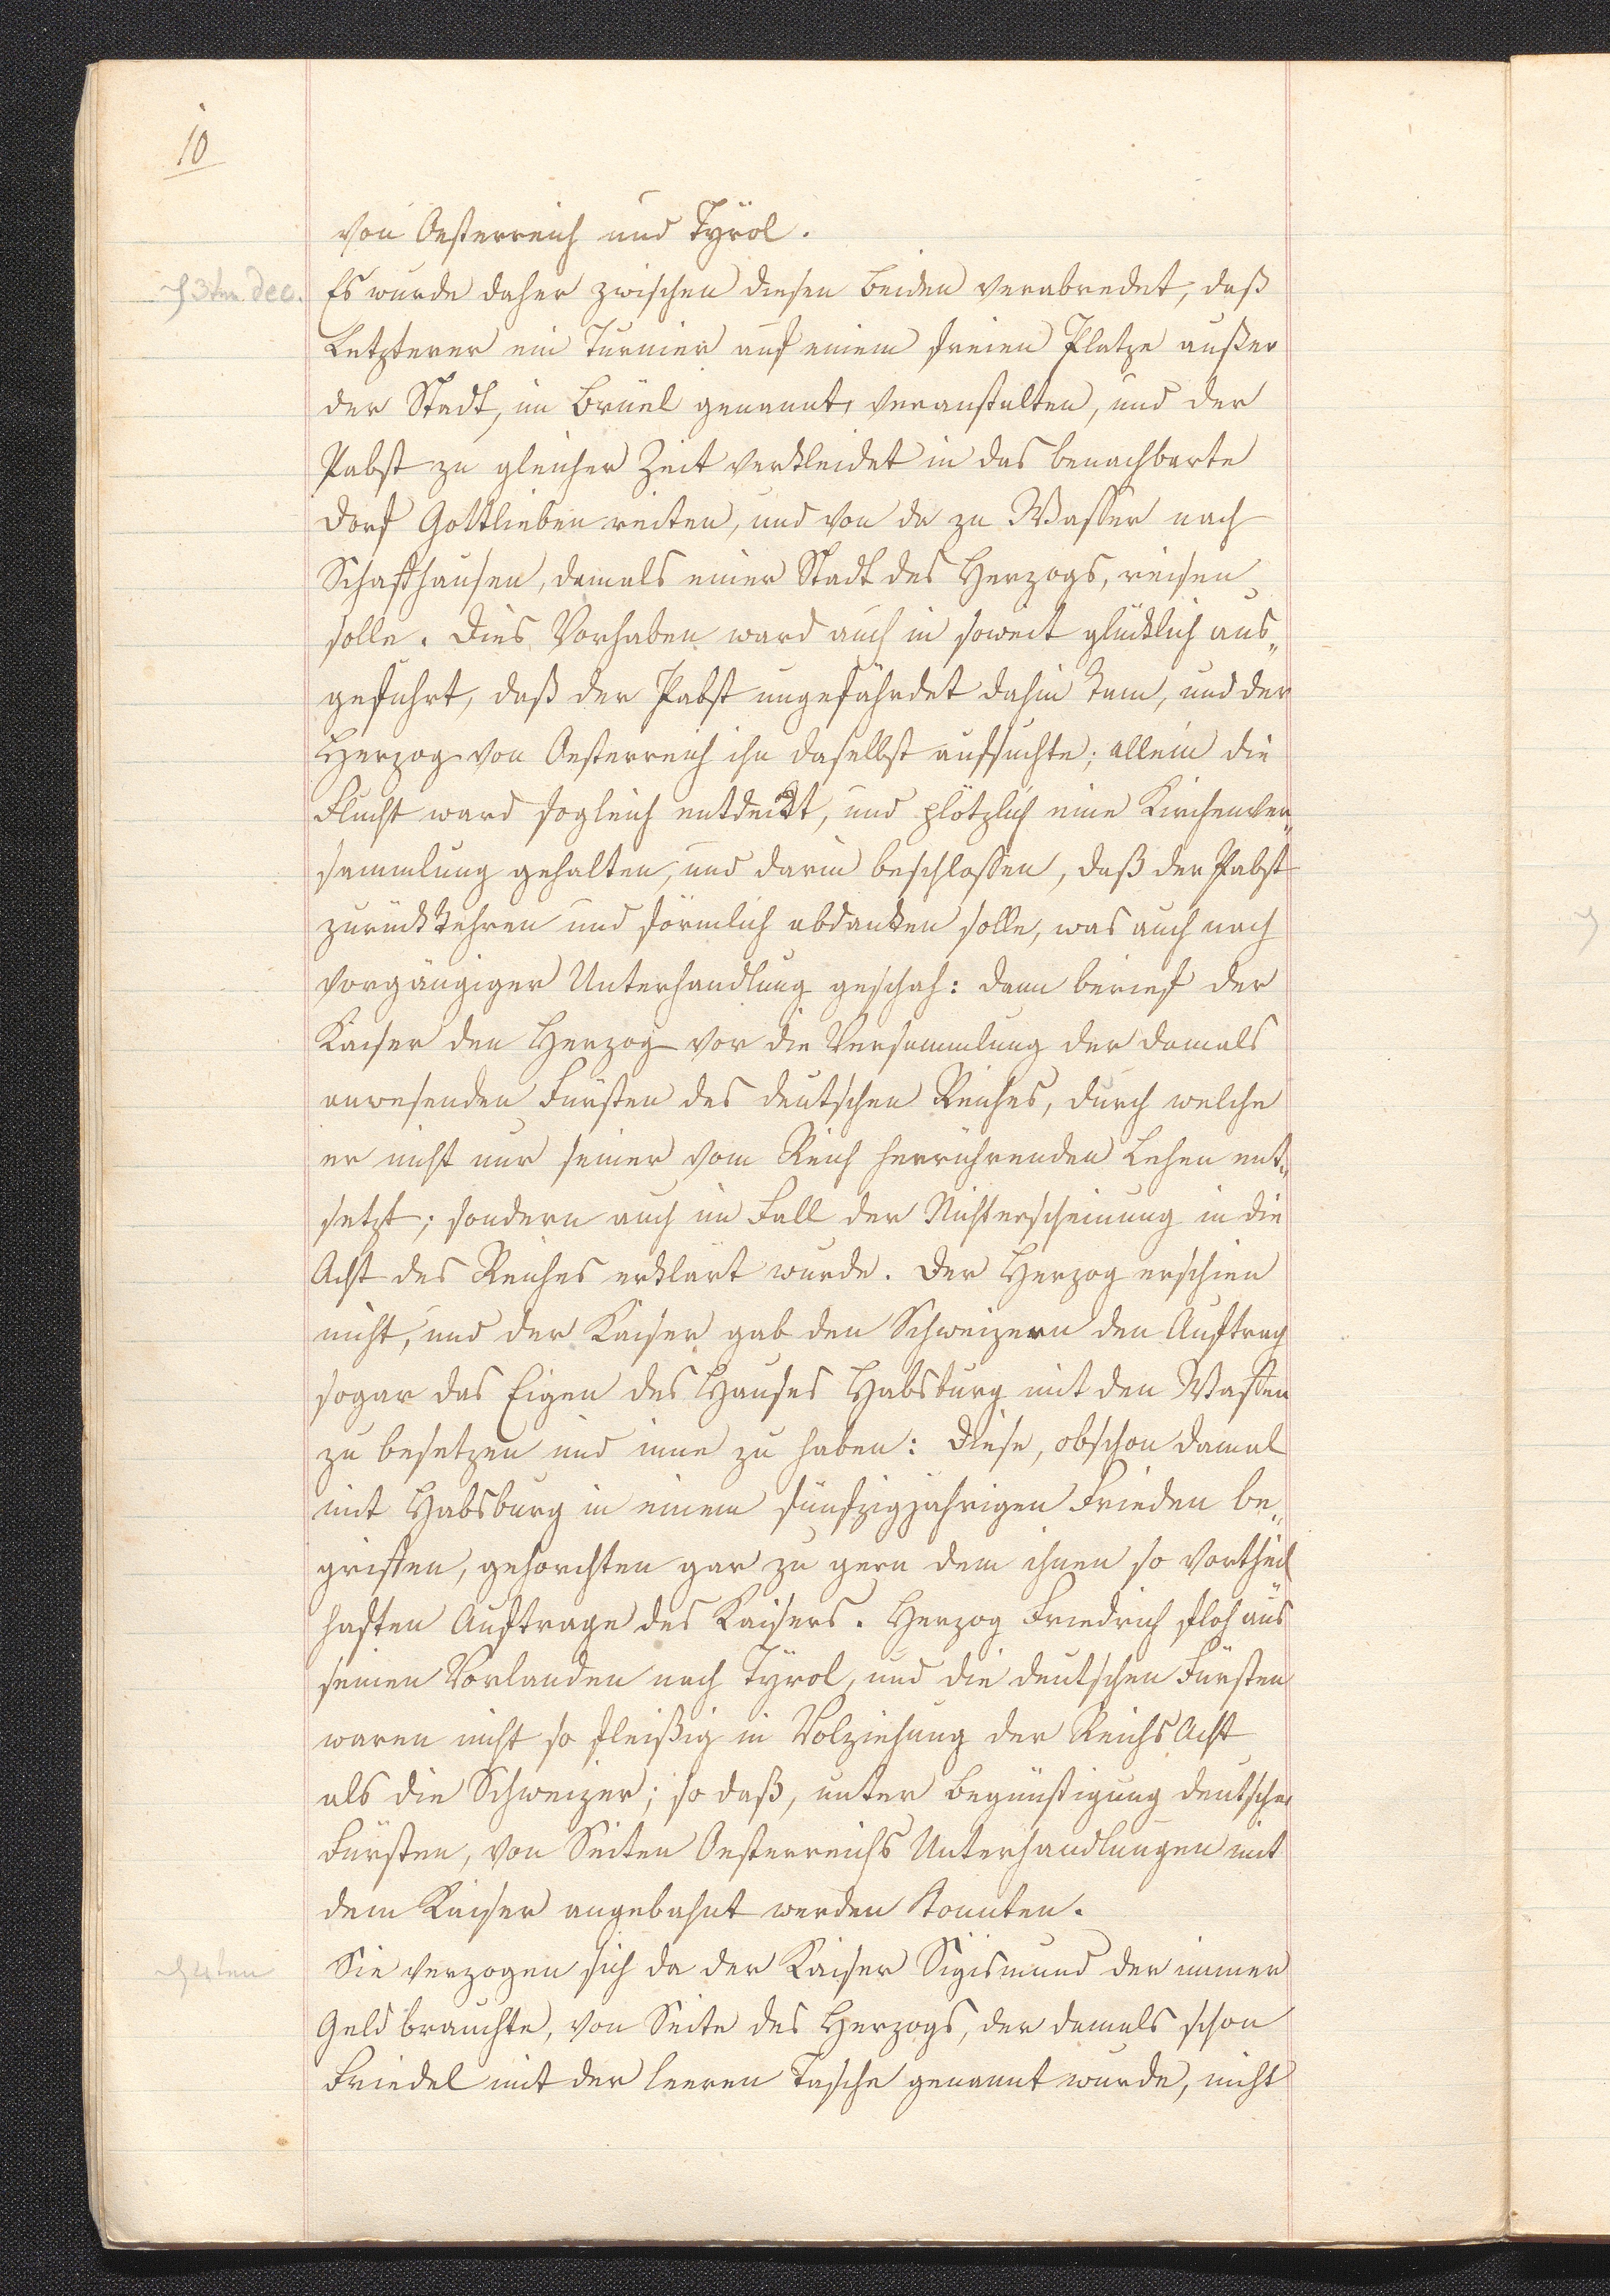 10
von Oesterreich und Tyrol.
3ten Dec.
Es wurde daher zwischen diesen beiden verabredet, daß
Letzterer ein Turnier auf einem freien Platze außer
der Stadt, im Brüel genannt, veranstalten, und der
Pabst zu gleicher Zeit verkleidet in das benachbarte
Dorf Gottlieben reiten, und von da zu Wasser nach
Schaffhausen, damals einer Stadt des Herzogs, reisen
solle. Dies Vorhaben ward auch in soweit glücklich aus„
geführt, daß der Pabst ungefährdet dahin kam, und der
Herzog von Oesterreich ihn daselbst aufsuchte; allein die
Flucht ward sogleich entdeckt, und plötzlich eine Kirchenver„
sammlung gehalten, und darin beschlossen, daß der Pabst
zurückkehren und förmlich abdanken solle, was auch nach
vorgängiger Unterhandlung geschah: dann berief der
Kaiser den Herzog vor die Versammlung der damals
anwesenden Fürsten des deutschen Reiches, durch welche
er nicht nur seiner vom Reich herrührenden Lehen ent„
setzt; sondern auch im Fall der Nichterscheinung in die
Acht des Reiches erklärt wurde. Der Herzog erschien
nicht, und der Kaiser gab den Schweizern den Auftrag
sogar das Eigen des Hauses Habsburg mit den Waffen
zu besetzen und inne zu haben: Diese, obschon damal
mit Habsburg in einem fünfzigjährigen Frieden be„
griffen, gehorchten gar zu gern dem ihnen so vortheil
haften Auftrage des Kaisers. Herzog Friedrich floh aus
seinen Vorlanden nach Tyrol, und die deutschen Fürsten
waren nicht so fleißig in Volziehung der Reichs Acht
als die Schweizer; so daß, unter Begünstigung deutscher
Fürsten, von Seiten Oesterreichs Unterhandlungen mit
dem Kaiser angebahnt werden konnten.
4ten
Sie verzogen sich da der Kaiser Sigismund der immer
Geld brauchte, von Seite des Herzogs, der damals schon
Friedel mit der leeren Tasche genannt wurde, nicht